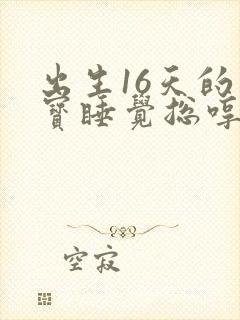 出生16天的
寳睡覺總哼
空寂